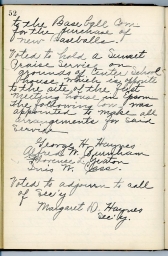 52
to the Base Ball Com
for the purchase of
new Baseballs.
Voted to hold a Sunset
Praise Service on
grounds of Center School
house which is opposite
to the site of the first
Meeting House. Upon
the following Com was
appointed to make all
arrangements for said
service
George H. Haynes
Alfred W. Burnham
Florence L. Yeaton
Iris W. Cass.
Voted to adjourn to call
of Sec'y.
Margaret D. Haynes
Sec'y.